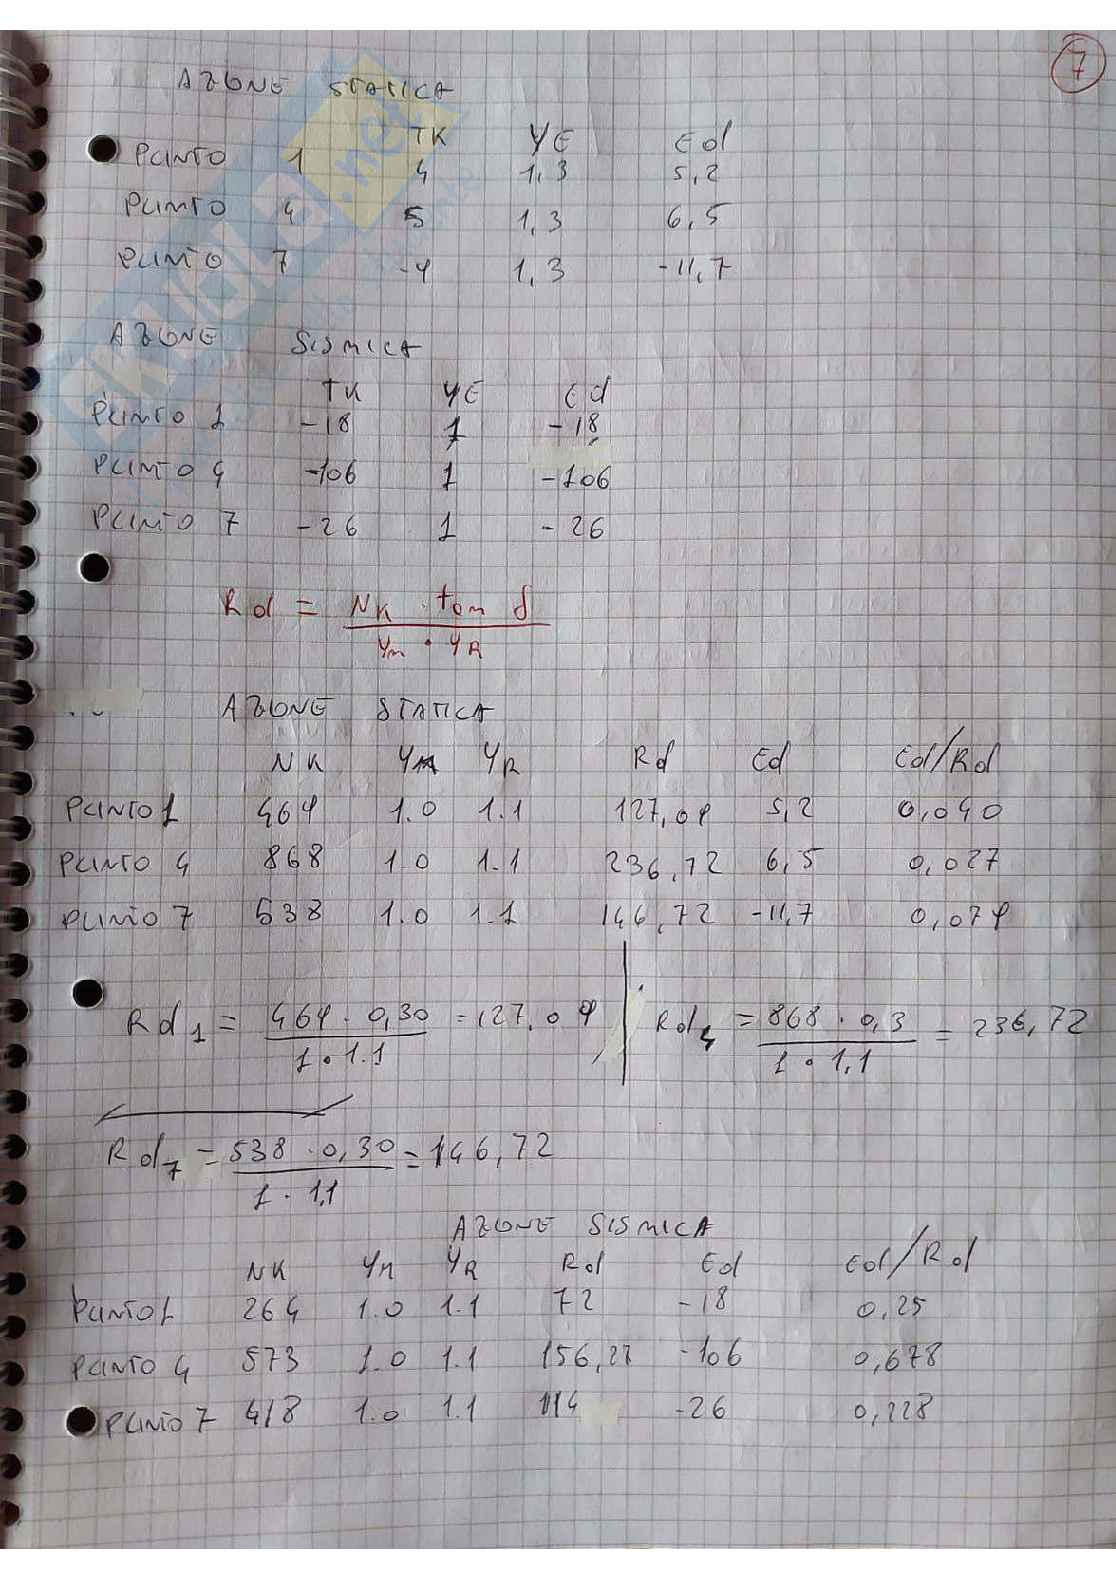 7
AZIONE STATICA
TK γE Ed
PUNTO 1 4 1,3 5,2
PUNTO 4 5 1,3 6,5
PUNTO 7 -9 1,3 -11,7
AZIONE SISMICA
TK γE Ed
PUNTO 1 -18 1 -18
PUNTO 4 -106 1 -106
PUNTO 7 -26 1 -26
Rd = NK · tan δ / γm · γR
AZIONE STATICA
NK γM γR Rd Ed Ed/Rd
PUNTO 1 464 1.0 1.1 127,09 5,2 0,040
PUNTO 4 868 1.0 1.1 236,72 6,5 0,027
PUNTO 7 538 1.0 1.1 146,72 -11,7 0,079
Rd1 = 464 · 0,30 / 1 · 1.1 = 127,09 | Rd4 = 868 · 0,3 / 1 · 1,1 = 236,72
Rd7 = 538 · 0,30 / 1 · 1,1 = 146,72
AZIONE SISMICA
NK γM γR Rd Ed Ed/Rd
PUNTO 1 264 1.0 1.1 72 -18 0,25
PUNTO 4 573 1.0 1.1 156,27 -106 0,678
PUNTO 7 418 1.0 1.1 114 -26 0,228